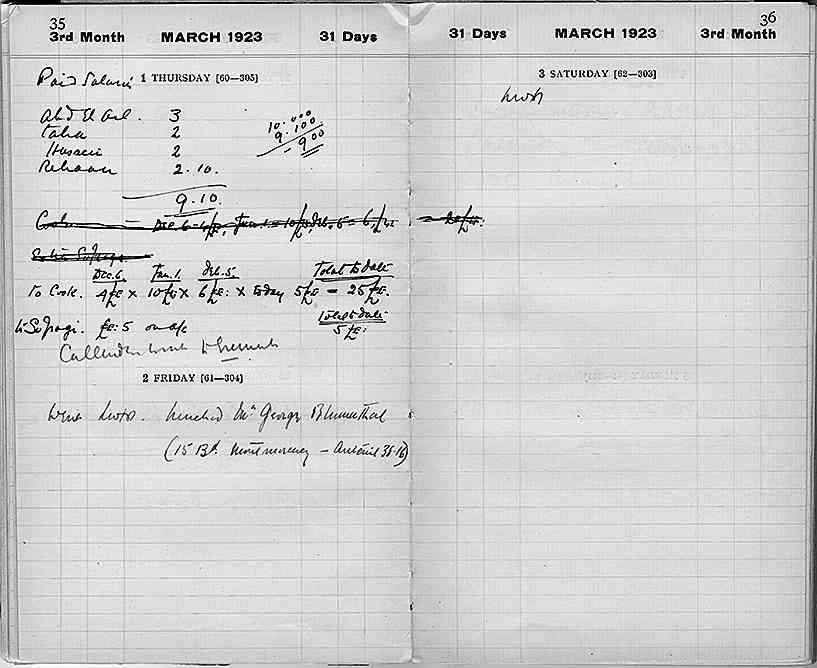 35
3rd Month MARCH 1923 31 Days
Paid Salaries 1 THURSDAY [60—305]
Abd El Aal . 3
Taha 2
Hussein 2
Rehaan 2.10.
9.10.
10.000
9.100
.900
Cook — Dec. 6 = 4 £E, Jan. 1 = 10 £E, Feb. 5 = 6
Dec. 6. Jan. 1. Feb. 5. Total to date
To Cook. 4 £E x 10 £E x 6 £E: x today 5 £E = 25 £E.
Total to date
to Sofragi. £E: 5 on a/c 5 £E:
Callender went to
2 FRIDAY [61—304]
Went Luxor. Lunched Mr George Blumenthal
(15 Bd. Montmorency — Auteuil 36-16)
36
31 Days MARCH 1923 3rd Month
3 SATURDAY [62—303]
Luxor